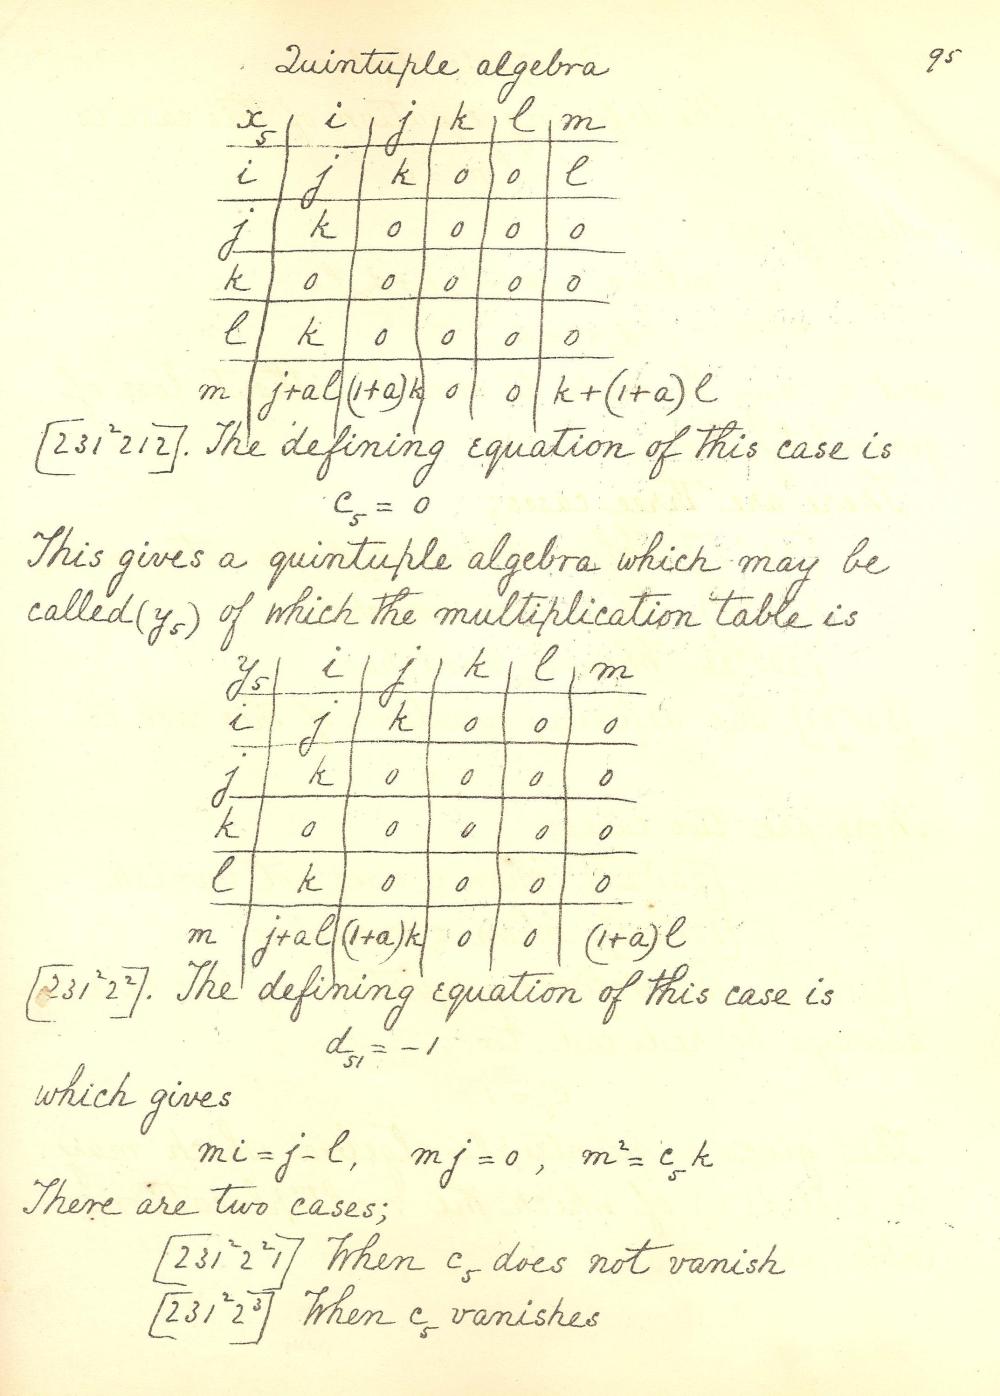 Quintuple algebra 95
x₅ | i | j | k | l | m
i | j | k | 0 | 0 | l
j | k | 0 | 0 | 0 | 0
k | 0 | 0 | 0 | 0 | 0
l | k | 0 | 0 | 0 | 0
m | j+al | (1+a)k | 0 | 0 | k+(1+a)l
[231²212]. The defining equation of this case is
c₅ = 0
This gives a quintuple algebra which may be
called (y₅) of which the multiplication table is
y₅ | i | j | k | l | m
i | j | k | 0 | 0 | 0
j | k | 0 | 0 | 0 | 0
k | 0 | 0 | 0 | 0 | 0
l | k | 0 | 0 | 0 | 0
m | j+al | (1+a)k | 0 | 0 | (1+a)l
[231²2²]. The defining equation of this case is
d₅₁ = -1
which gives
mi = j-l, mj = 0, m² = c₅k
There are two cases;
[231²2²1] When c₅ does not vanish
[231²2³] When c₅ vanishes